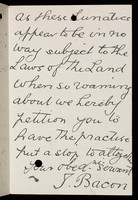 as these Lunatics
appear to be in no
way subject to the
Laws of the Land
when so roaming
about we hereby
Petition you to
have the practise
put a stop to altogether
Your obedt Servant
J. Bacon